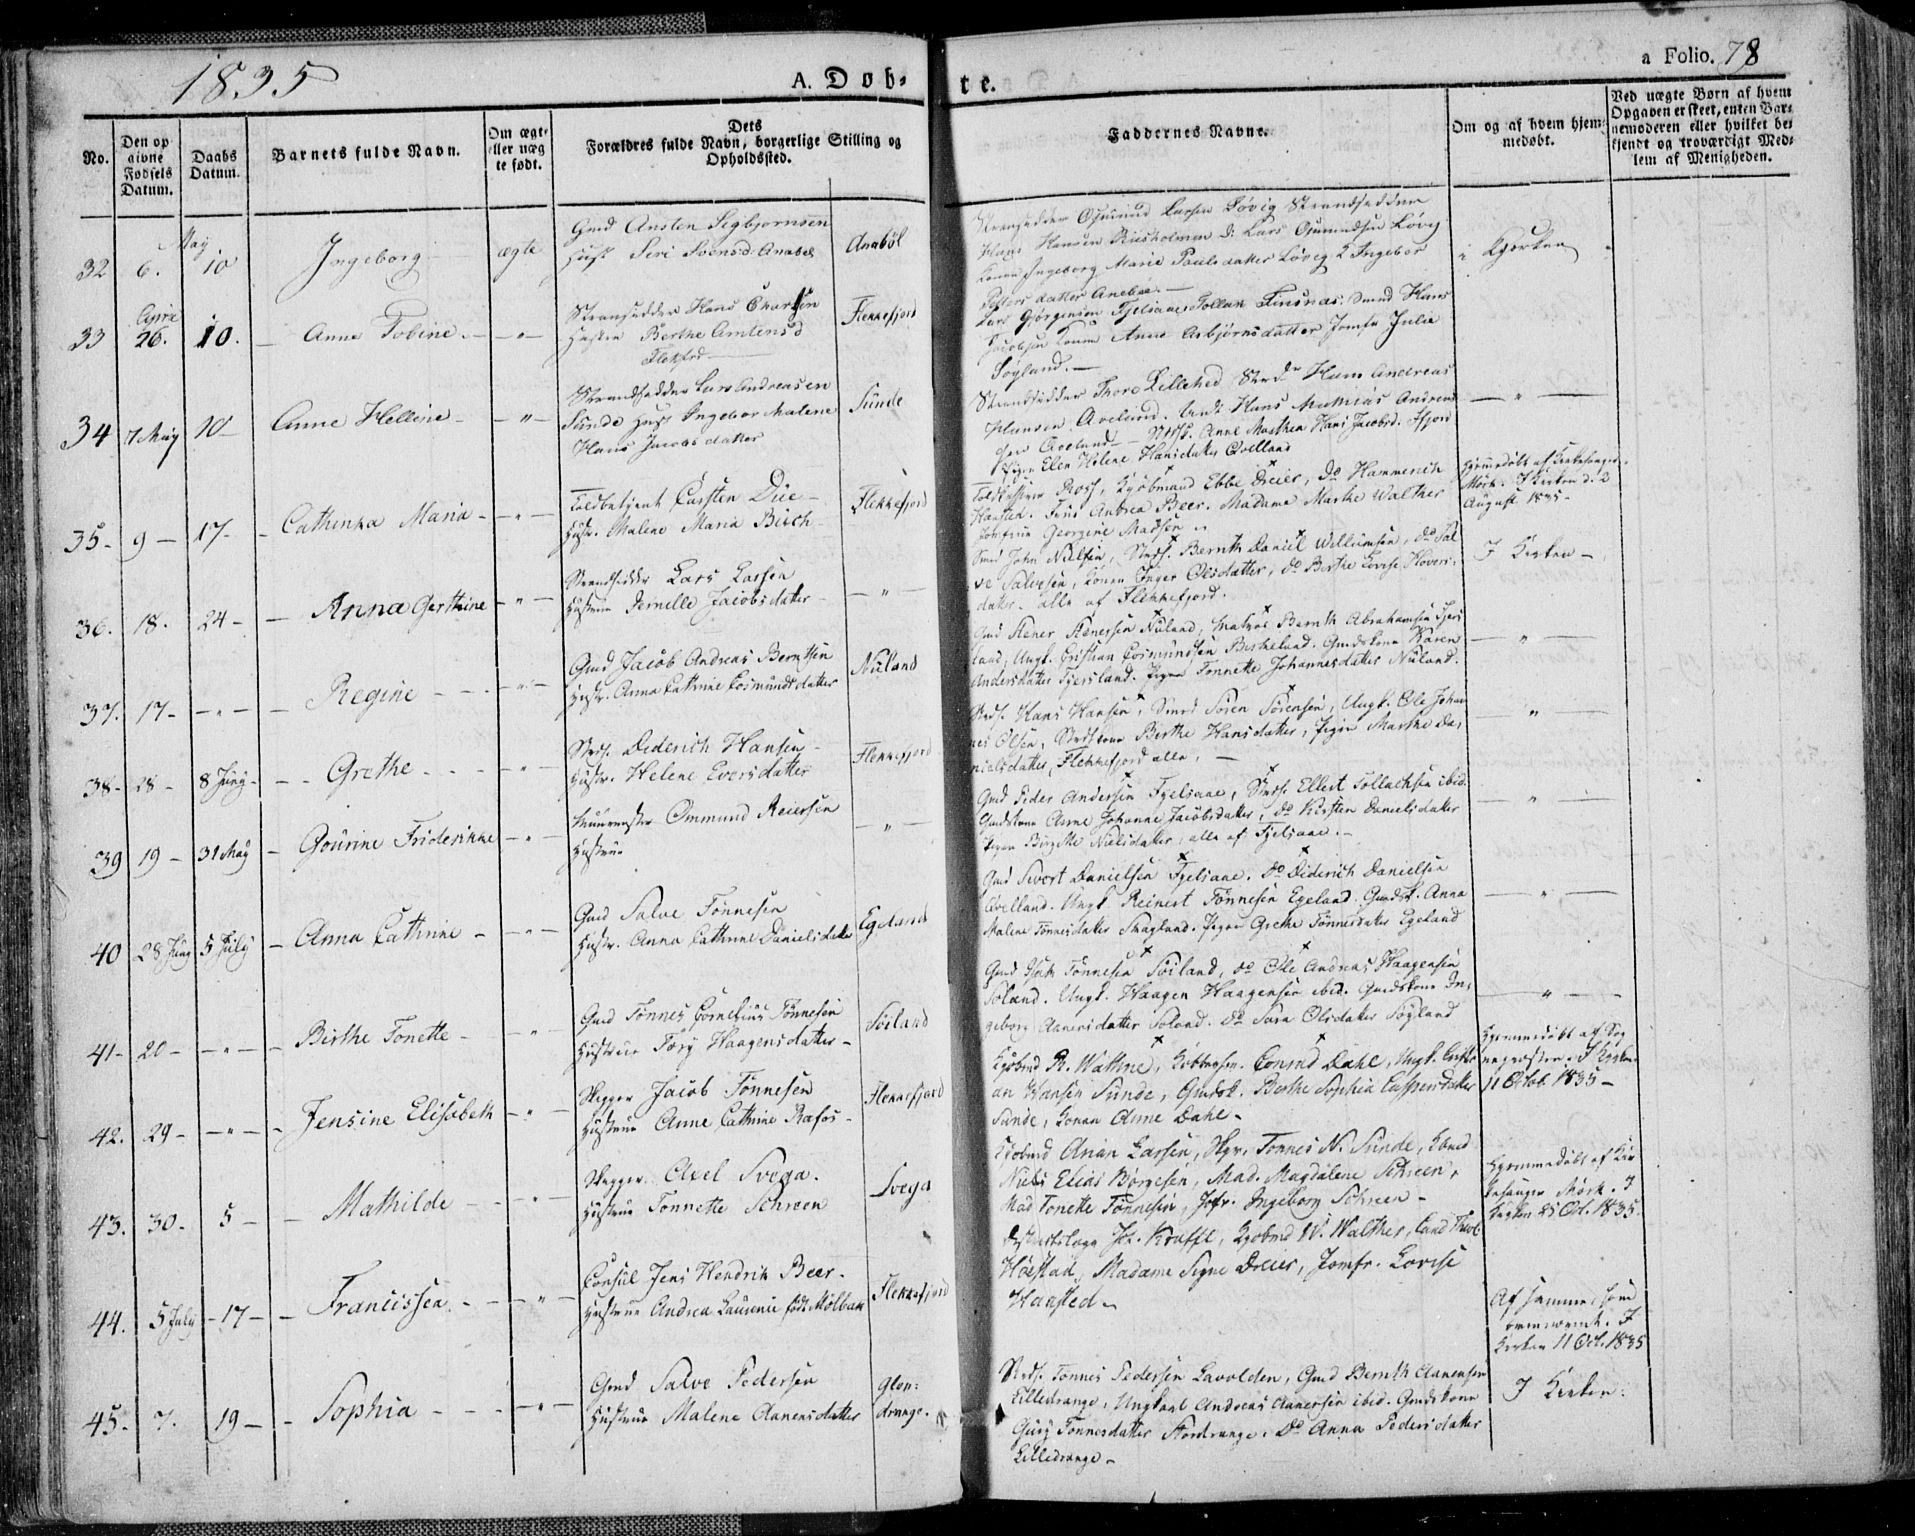 1835
A. Døb-
te.
a Folio. 78
No.
Den op
givne
Fødsels
Datum.
Daabs
Datum.
Barnets fulde Navn.
Om ægte
eller uæg
te født.
Dets
Forældres fulde Navn, borgerlige Stilling og
Opholdssted.
Faddernes Navne.
Om og af hvem hjem-
medøbt.
Ved uægte Børn af hvem
Opgaven er skeet, enten Bar-
nemoderen eller hvilket be-
kjendt og troværdigt Med-
lem af Menigheden.
May
32 6. 10 Ingeborg ægte
Gmd Ansten Sigbjørnsen
Hust Siri Svensd. Anabøl
Anabøl
Strandsidder Osmund Larsen Løvig Strandsidder
Hans Hansen Lars Osmundsen Løvig
Konen Ingeborg Marie Poulsdatter Løvig Ingebor
i Kjerken
33 26. 10. Anne Tobine - " -
Strandsidder Hans
Hustru Berthe
Flekkefjord
Lars Gjørgensen Fjelsaae Tollak Finsnæs. Smed Hans
Jacobsen Konen Anne Asbjørnsdatter Jomfru Julie
Søyland. -
34 7 May 10 - Anne Helline - " -
Strandsidder Lars Andreasen
Sunde Hust Ingebor Malene
Hans Jacobsdatter
Sunde
Strandsidder Thore Lillehed Hans Andreas
Hansen Hans Mathias Andreas
Anne Marthea Hans Jacobsd.
Pigen Elen Helene Hansdatter Qvelland
- " -
35 - 9 - 17 - - Cathinka Maria - " -
Toldbetjent Carsten Due -
Hustr. Malene Maria Birch -
Flekkefjord
Ross, Kjøbmand Ebbe Dreier, Do Hammerich
Hansted. Andrea Beer. Madame Marthe Walther
Jomfrue Georgine Madsen
Hjemmedøbt af Kirkesanger
Mørk. I Kirken d. 2
August 1835 -
36. 18. 24 - - Anna Gerthrine - " -
Strandsidder Lars Larsen
Hustrue Pernille Jacobsdatter
- " -
Smed John Nielsen, Strds. Bernth Daniel Willumsen, do Sal
ve Salvesen, Konen Inger Olsdatter, do Berthe Lovise
datter - alle af Flekkefjord.
I Kirken -
37. 17 - - " - - Regine - - " -
Gmd Jacob Andreas Berntsen
Hustr. Anna Cathrine Cosmundsdatter
Nuland
Gmd Stener Stenersen Nuland, Matros Bernth Abrahamsen Fjers
land, Ungk. Cristian Cosmundsen Birkeland. Gmdskone Karen
Andersdatter Fjersland. Pigen Tonnette Johannesdatter Nuland.
- " -
38 - 28 - 8 Juny - - Grethe - - " -
Strds. Diderich Hansen -
Hustr. Helene Eversdatter
Flekkefjord
Strds. Hans Hansen, Smed Sören Sörensen, Ungk. Ole Johan
nes Olsen, Strdskone Berthe Hansdatter, Pigen Marthe Da-
nielsdatter, Flekkefjord alle. -
- " -
39 19 - 31 May - Gourine Friderikke - " -
Ommund Reiersen
Hustrue
- " -
Gmd Peder Andersen Fjelsaae, Strds. Ellert Tollachsen ibid.
Gmdskone Anne Johanne Jacobsdatter, do Kirsten Danielsdatter
Pigen Birgitte Nielsdatter, alle af Fjelsaae. -
- " -
40 28 Juny 5 July - Anna Cathrine - - " -
Gmd Salve Tönnesen
Hustr. Anna Cathrine Danielsdatter
Egeland
Gmd Sivert Danielsen Fjelsaae. do Diderich Danielsen
Qvelland. Ungk. Reinert Tönnesen Egeland. Gmdsk. Anna
Malene Tönnesdatter Skagland. Pigen Grethe Tönnesdatter Egeland
- " -
41 - 20 - - " - - Birthe Tonette - - " -
Gmd Tönnes Cornelius Tönnesen
Hustrue Tory Haagensdatter -
Söiland
Gmd Tönnesen Söiland, do Ole Andreas Haagensen
Söland. Ungk. Haagen Haagensen ibid. Gmdskone In-
geborg Aanensdatter Söland. do Sara Olsdatter Söyland
- " -
42. 29 - - " - - Jensine Elisabeth - " -
Skipper Jacob Tönnesen
Hustrue Anne Cathrine Rafos -
Flekkefjord
Kjøbmd R. Wathne, Conrad Dahl, Ungk. Cristi
an Hansen Sunde, Gmdsk. Berthe Sophia Caspersdatter
Sunde, Konen Anne Dahl -
Hjemmedøbt af Sog
nepræsten. I Kirken
11 Octob. 1835 -
43. 30. 5 - - Mathilde - - " -
Skipper Axel Svega.
Hustrue Tonnette Schreen
Svega
Kjøbmd Arian Larsen, Skpr. Tonnes N. Sunde, Kbmd
Niels Elias Börgesen, Mad. Magdalene Schreen,
Mad Tonette Tönnesen, Jofr. Ingeborg Schreen -
Hjemmedøbt af Kir
kesanger Mørk. I
Kirken 25 Oct. 1835.
44. 5 July - 17 - - Francissca - - " -
Consul Jens Hendrik Beer -
Hustrue Andrea Laurenia født Mölbach
Flekkefjord
Districtslæge Krafft, Kjøbmd W. Walther, Cand Theol
Höestad, Madame Signe Dreier, Jomfr. Lovise
Hansted -
Af samme som
ovennævnte. I
Kirken 11 Oct. 1835
45 - 7. 19 - - Sophia - - - " -
Gmd Salve Pedersen
Hustrue Malene Aanensdatter
Glen-
drange.
Strds. Tonnes Pedersen Lavolden, Gmd Bernth Aanensen
Lilledrange, Ungkarl Andreas Aanensen ibid. Gmdskone
Gury Tonnesdatter Stordrange. Do Anna Pedersdatter
Lilledrange -
I Kirken.